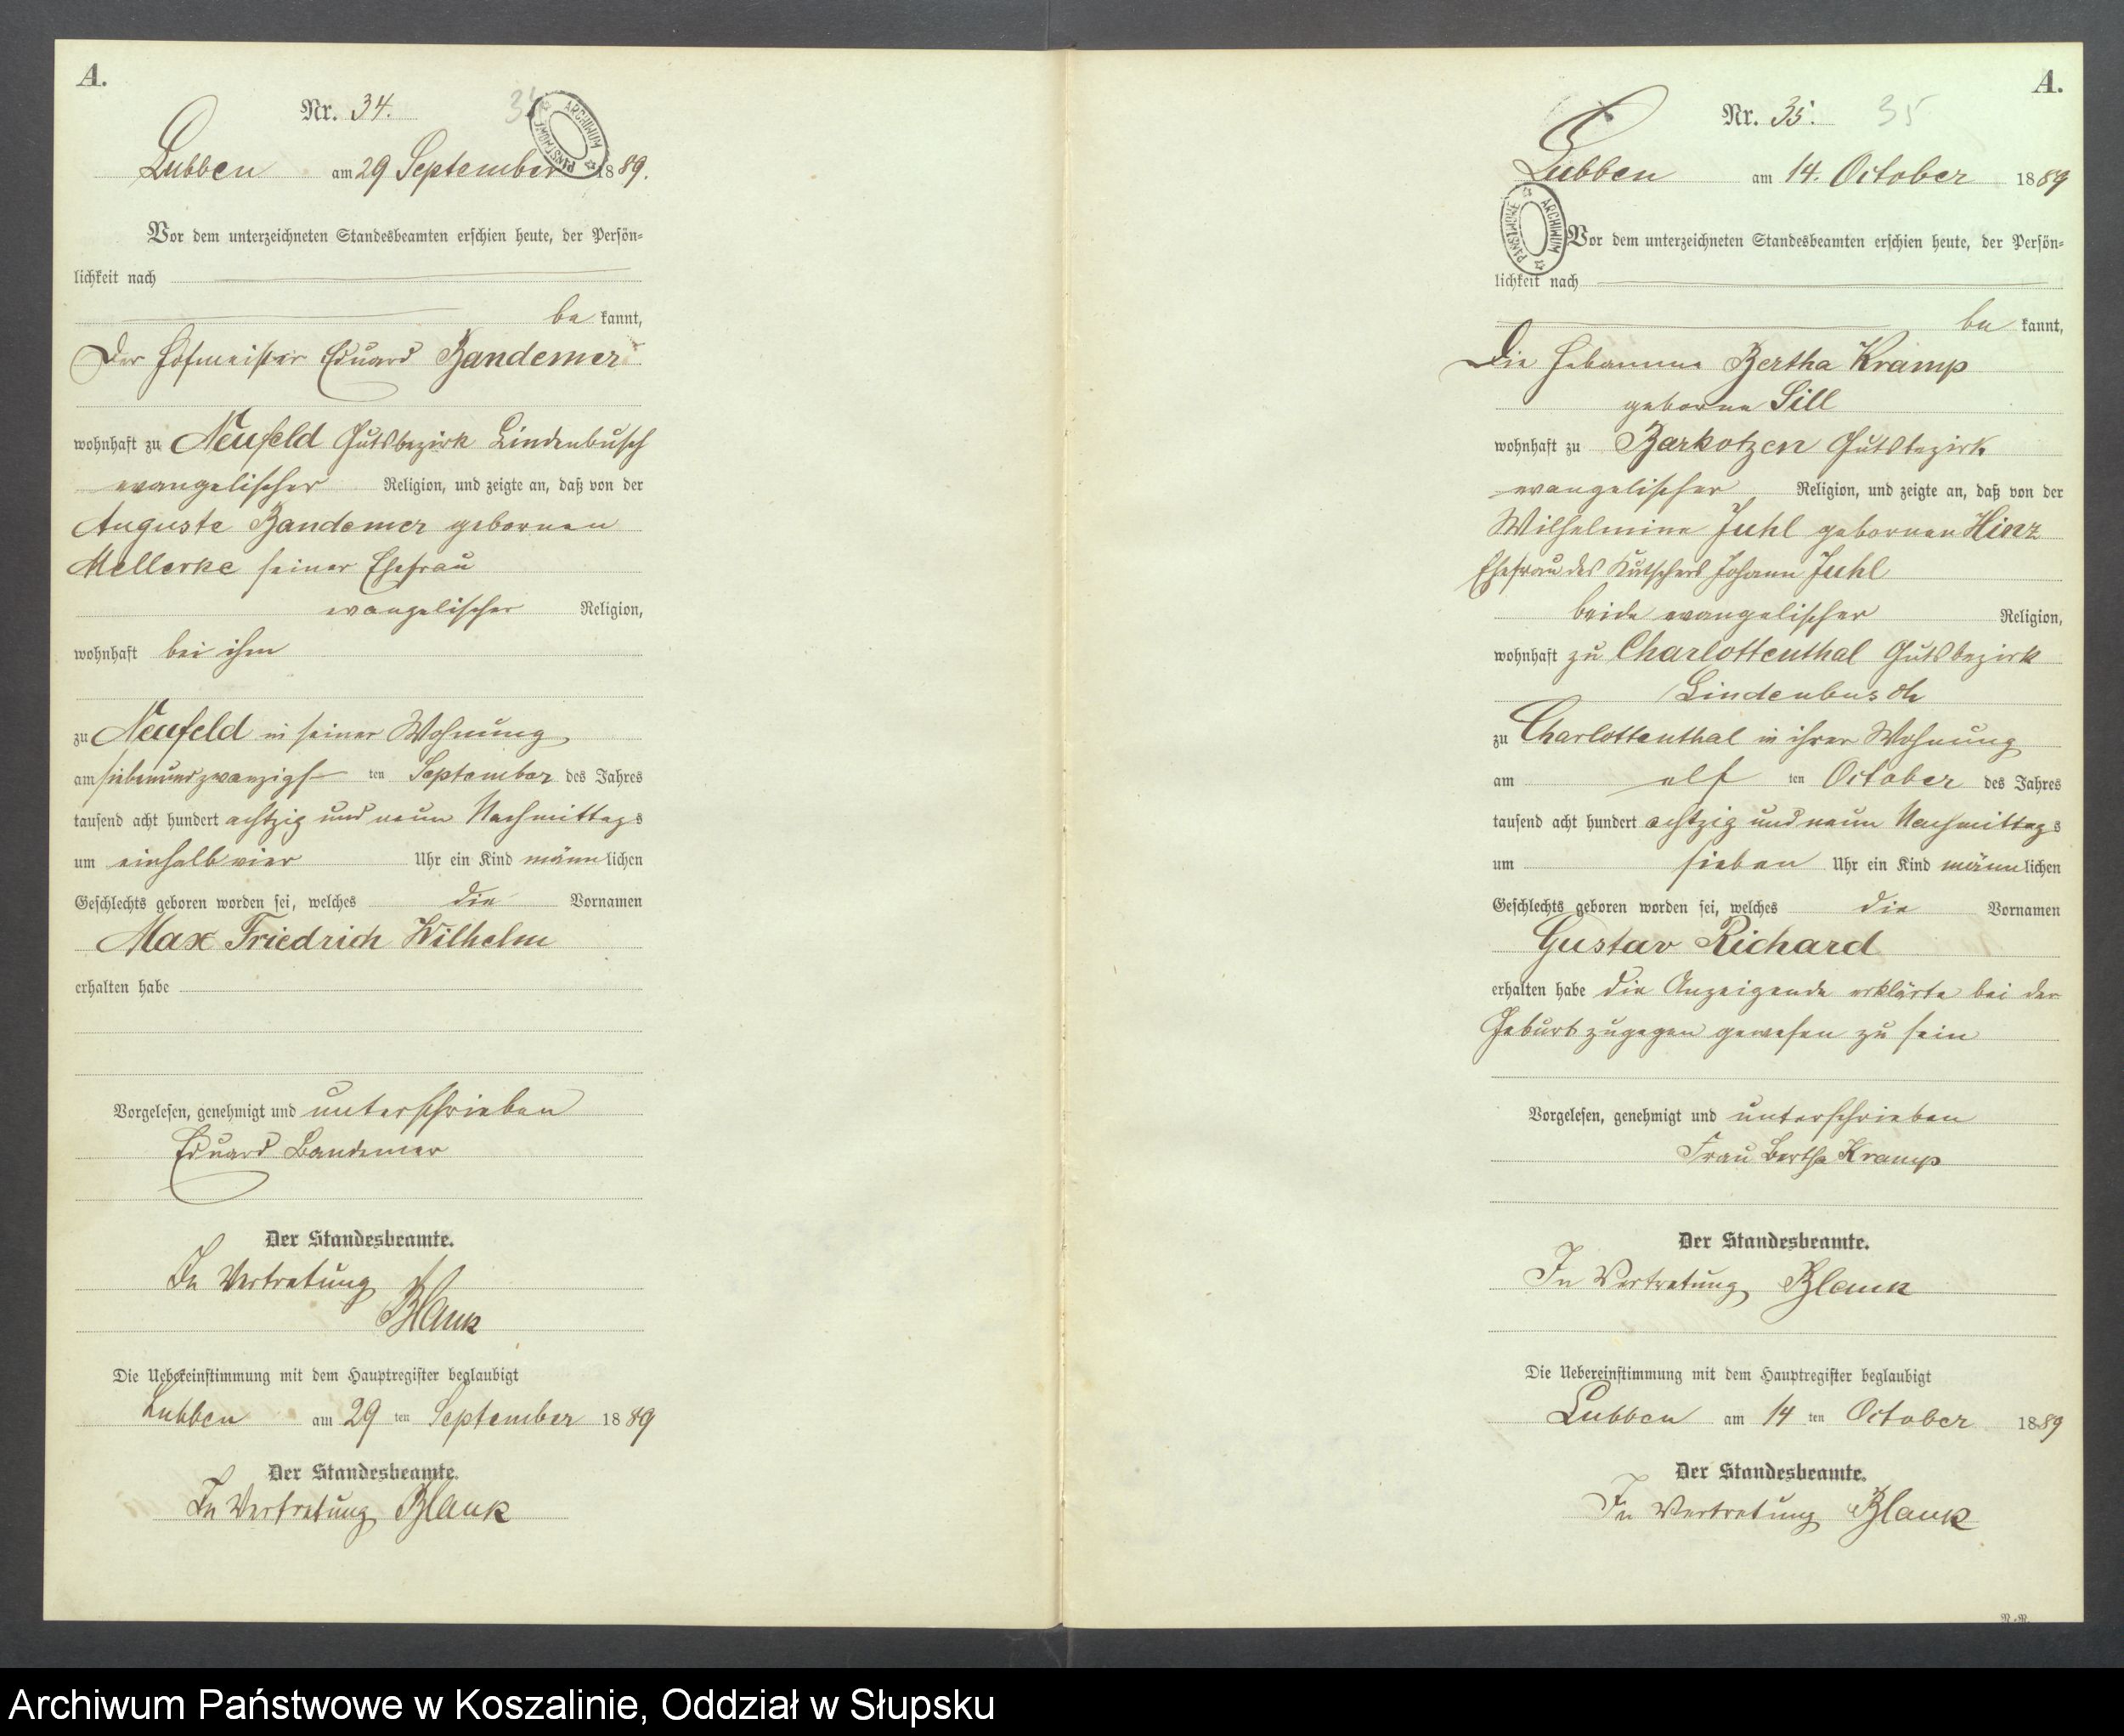 A.
Nr. 34.
34
ARCHIWUM PAŃSTWOWE
Lubben am 29 September 1889.
Vor dem unterzeichneten Standesbeamten erschien heute, der Persön-
lichkeit nach
be kannt,
Der Hofmeister Eduard Bandemer
wohnhaft zu Neufeld Gutsbezirk Lindenbusch
evangelischer Religion, und zeigte an, daß von der
Auguste Bandemer gebornen
Mellerke seiner Ehefrau
evangelischer Religion,
wohnhaft bei ihm
zu Neufeld in seiner Wohnung
am siebenundzwanzigsten September des Jahres
tausend acht hundert achtzig und neun Nachmittags
um einhalb vier Uhr ein Kind männlichen
Geschlechts geboren worden sei, welches die Vornamen
Max Friedrich Wilhelm
erhalten habe
Vorgelesen, genehmigt und unterschrieben
Eduard Bandemer
Der Standesbeamte.
In Vertretung
Blank
Die Uebereinstimmung mit dem Hauptregister beglaubigt
Lubben am 29 ten September 1889
Der Standesbeamte.
In Vertretung Blank
A.
Nr. 35.
35
Lubben am 14. October 1889
ARCHIWUM PAŃSTWOWE
Vor dem unterzeichneten Standesbeamten erschien heute, der Persön-
lichkeit nach
be kannt,
Die Hebamme Bertha Kramp
geborne Sill
wohnhaft zu Barkotzen Gutsbezirk
evangelischer Religion, und zeigte an, daß von der
Wilhelmine Juhl gebornen Hinz
Ehefrau des Kutschers Johann Juhl
beide evangelischer Religion,
wohnhaft zu Charlottenthal Gutsbezirk
Lindenbusch
zu Charlottenthal in ihrer Wohnung
am elf ten October des Jahres
tausend acht hundert achtzig und neun Nachmittags
um sieben Uhr ein Kind männlichen
Geschlechts geboren worden sei, welches die Vornamen
Gustav Richard
erhalten habe die Anzeigende erklärte bei der
Geburt zugegen gewesen zu sein
Vorgelesen, genehmigt und unterschrieben
Frau Bertha Kramp
Der Standesbeamte.
In Vertretung Blank
Die Uebereinstimmung mit dem Hauptregister beglaubigt
Lubben am 14 ten October 1889
Der Standesbeamte.
In Vertretung Blank
Archiwum Państwowe w Koszalinie, Oddział w Słupsku